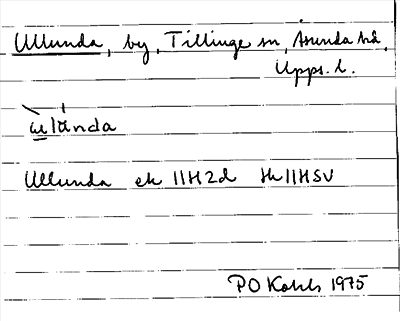 Ullunda, by, Tillinge sn, Åsunda hd,
Upps. l.
ùlánda
Ullunda ek 11H2d hk 11HSV
PO Kohls 1975